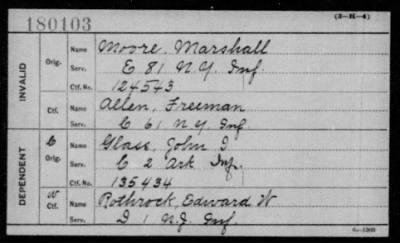 180103
(3-H-4)
INVALID
Orig.
Name Moore, Marshall
Serv. E 81 N.Y. Inf
Ctf. No. 124543
Ctf.
Name Allen, Freeman
Serv. C 61 N.Y. Inf
DEPENDENT
C
Orig.
Name Glass, John I.
Serv. C 2 Ark Inf.
Ctf. No. 135434
W
Ctf.
Name Rothrock, Edward W
Serv. D 1 N.J. Inf